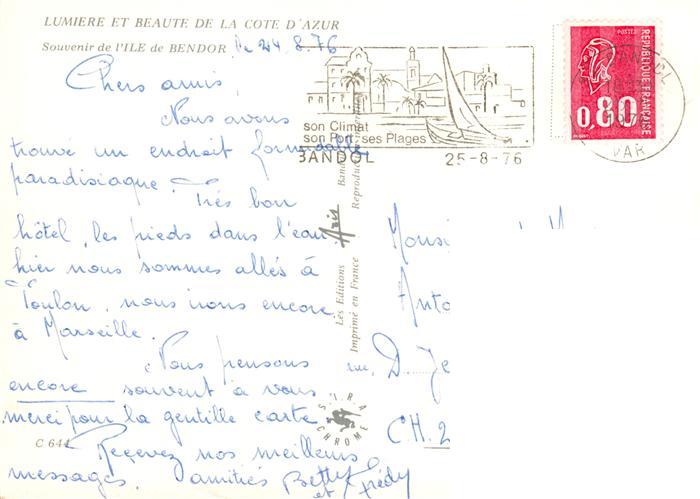 LUMIERE ET BEAUTE DE LA COTE D'AZUR
Souvenir de l'ILE de BENDOR
le 24.8.76
Chers amis,
Nous avons
trouvé un endroit formidable,
paradisiaque. Très bon
hôtel, les pieds dans l'eau.
hier nous sommes allés à
Toulon, nous irons encore
à Marseille.
Nous pensons
encore souvent à vous
merci pour la gentille carte.
Recevez nos meilleurs
messages. amitiés Betty
et Frédy
C 644
son Climat
son Port ses Plages
BANDOL
25-8-76
REPUBLIQUE FRANÇAISE
POSTES
0,80
VAR
Les Editions
Imprimé en France
SIRA
CHROME
Monsi
Anto
rue, D. Je
CH. 2